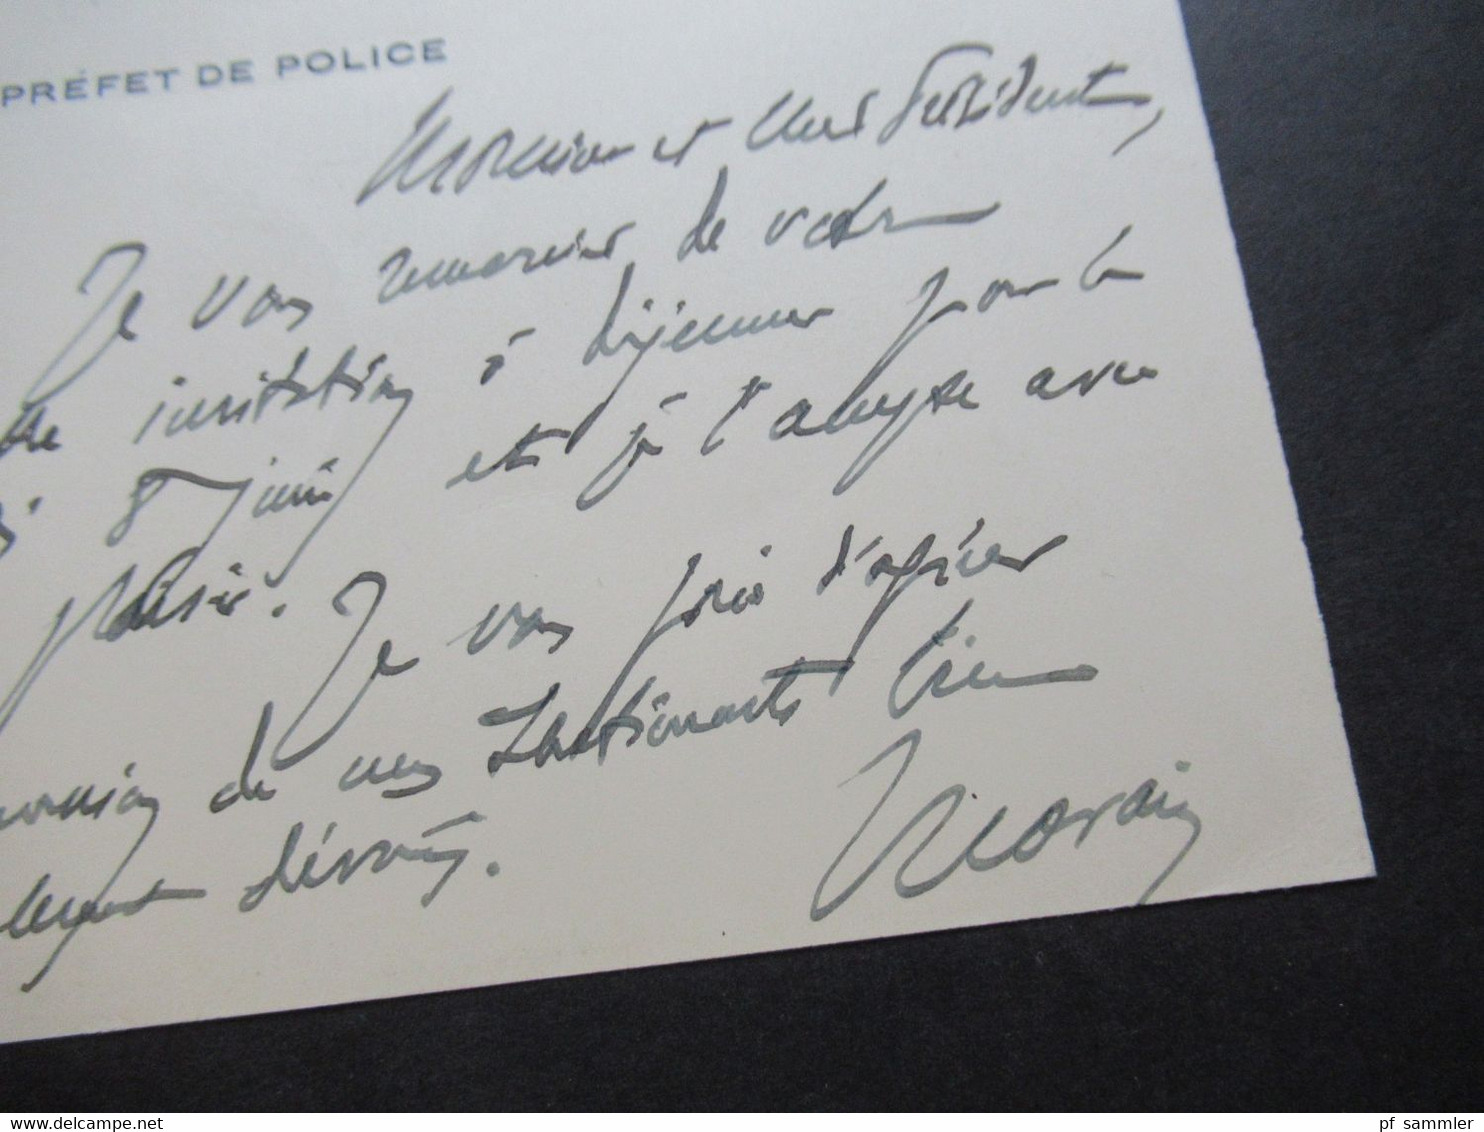 PRÉFET DE POLICE
Monsieur et cher Président,
Je vous remercie de votre
invitation à déjeuner pour le
8 juin et je l'accepte avec
plaisir. Je vous prie d'agréer
de mes sentiments bien
dévoués.
Morain
www.delcampe.net
pf_sammler